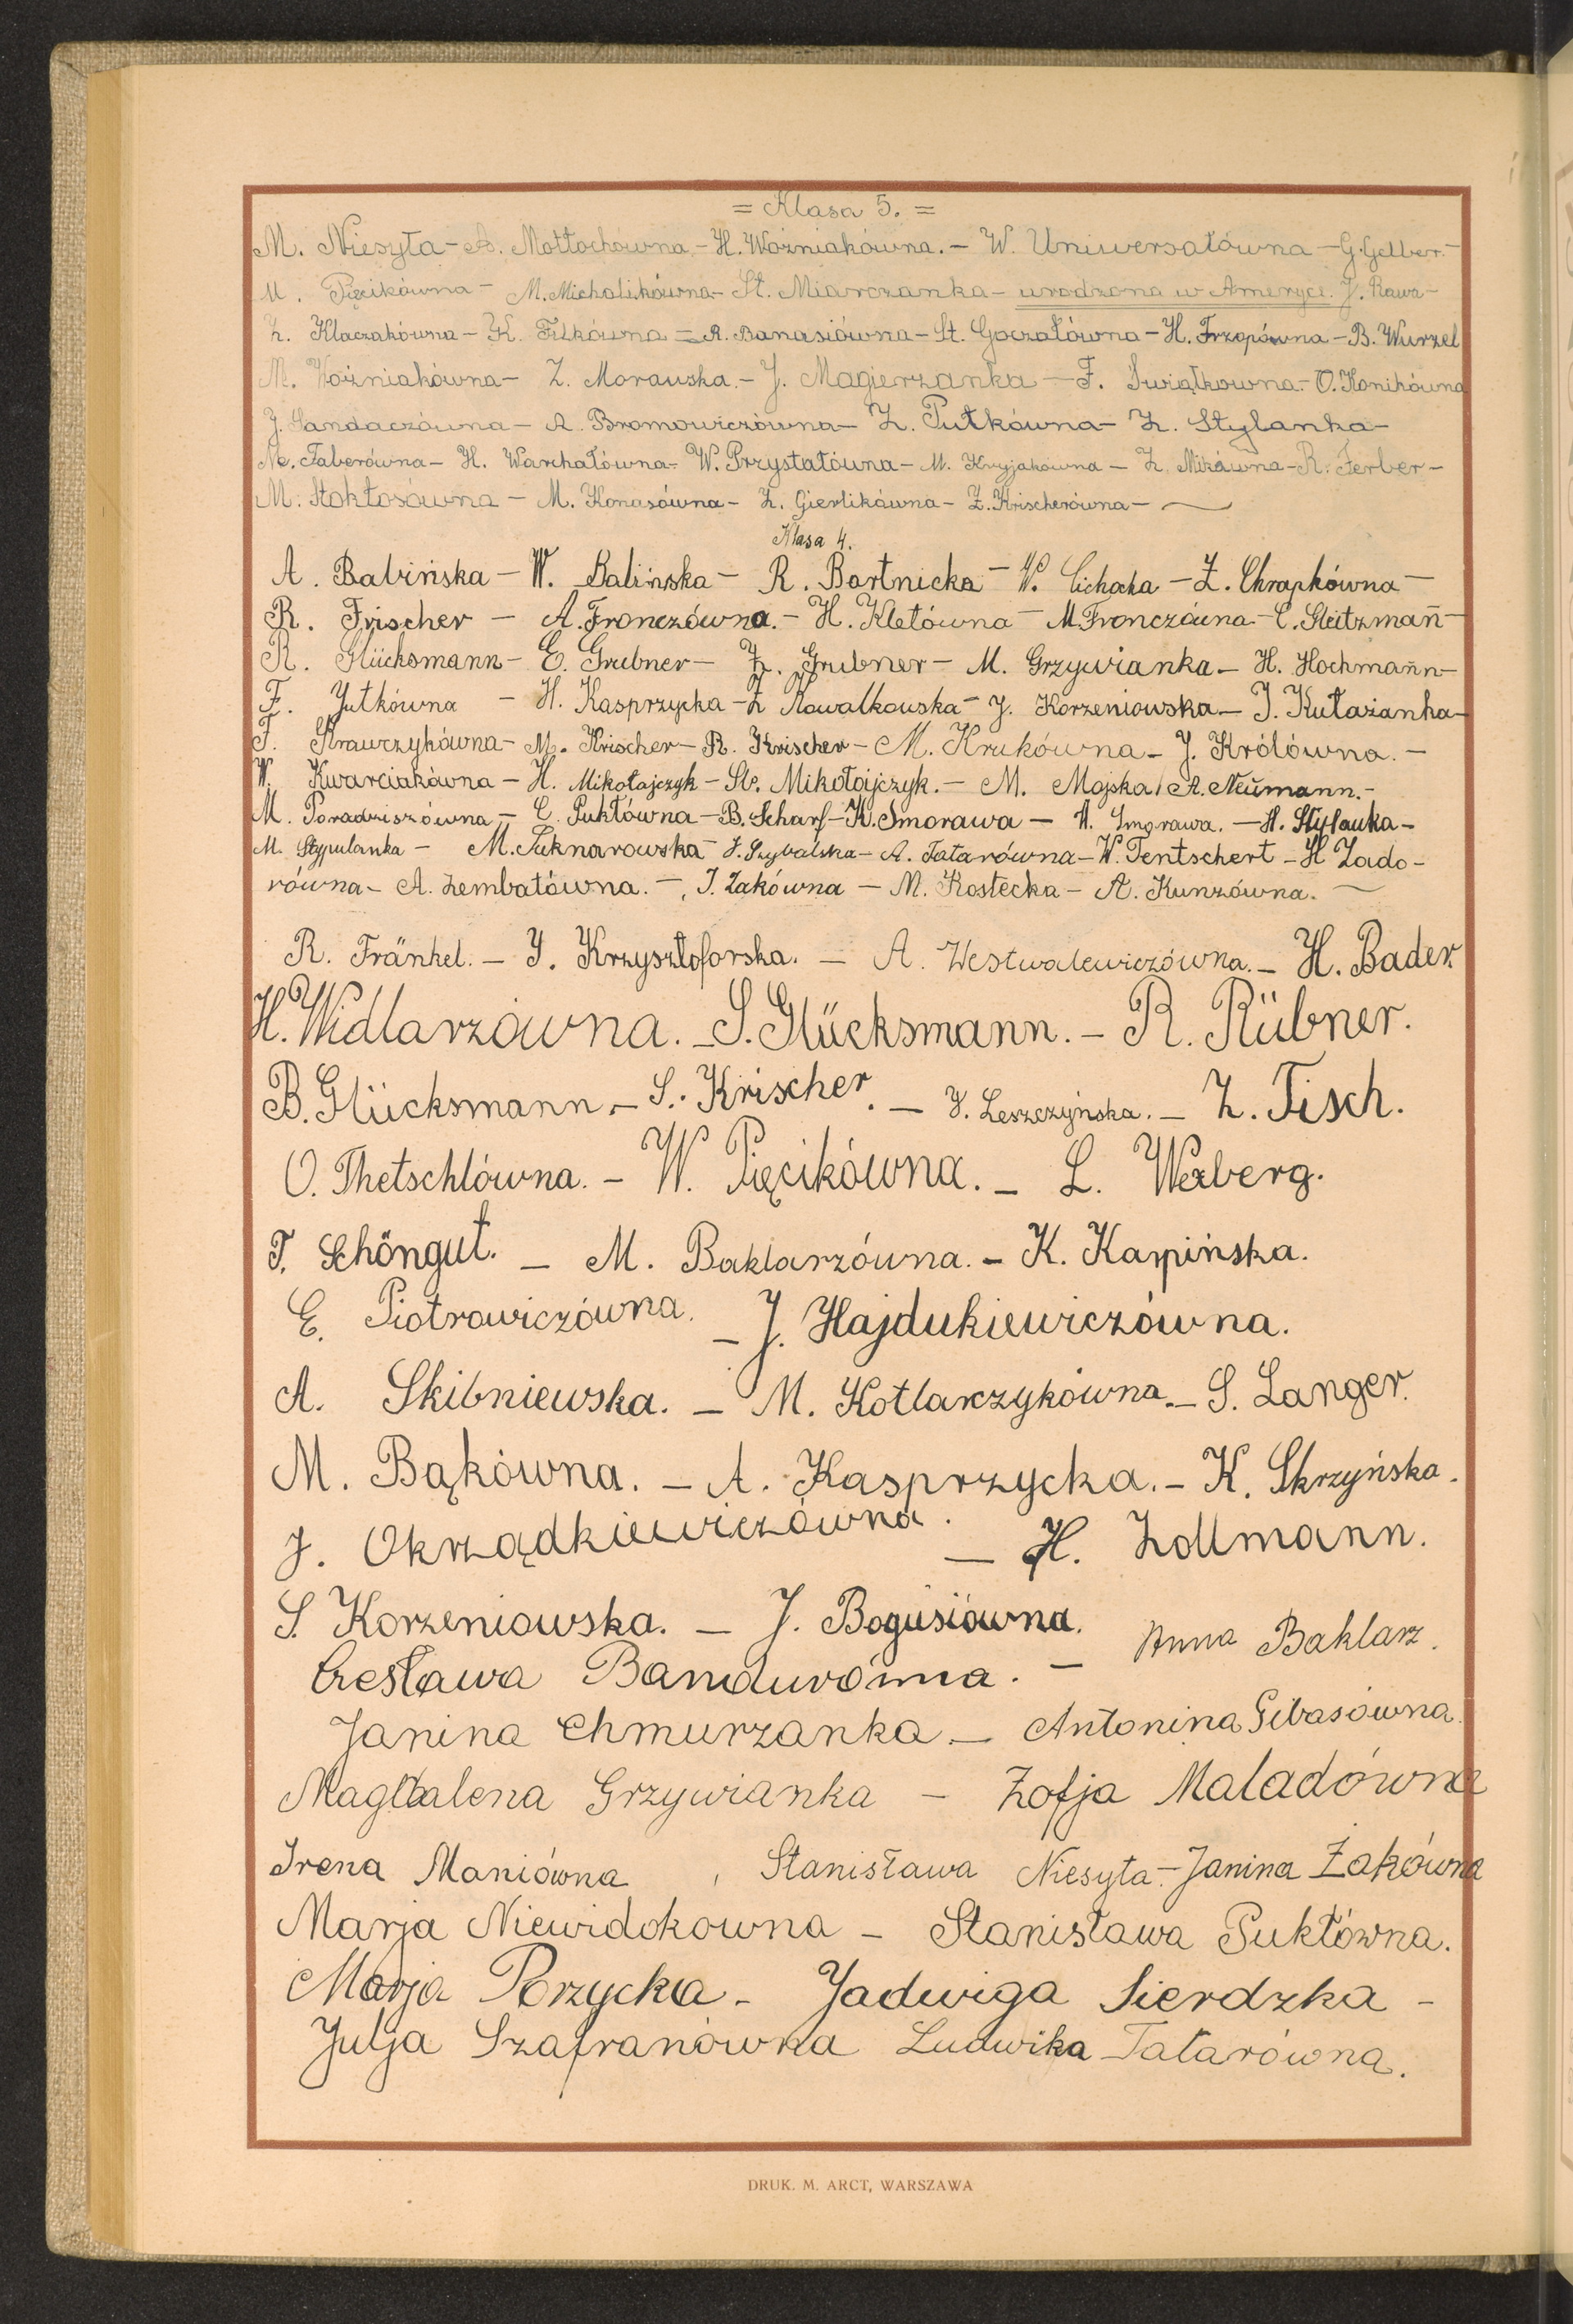 = Klasa 5. =
M. Niesyta - A. Mottochowna - H. Woźniakówna. - W. Uniwersałówna - G. Gelber. -
M. Pięcikówna - M. Michalikówna - St. Miarczanka - urodzona w Ameryce. J. Rawa -
Z. Klaczakówna - K. Filkówna = R. Banasiówna - St. Goczałówna - H. Frzopówna - B. Wurzel
M. Woźniakówna - Z. Morawska. - J. Magierzanka - F. Świątkowna. - O. Konikówna
J. Sandaczówna - A. Bromowiczówna - Z. Putkówna - Z. Stylanka -
M. Faberówna - H. Warchałówna - W. Przystałówna - M. Kryjakówna - Z. Mikówna - R. Ferber -
M. Stokłosówna - M. Konasówna - Z. Gierlikówna - Z. Krischerówna -
Klasa 4.
A. Babińska - W. Balińska - R. Bartnicka - W. Cichocka - Z. Chrapkówna -
R. Frischer - A. Fronczówna. - H. Kletówna - M. Fronczówna - C. Gleitzmañ -
R. Glücksmann - E. Grubner - Z. Grubner - M. Grzywianka - H. Hochmañn -
F. Jutkówna - H. Kasprzycka - Z Kowalkowska - J. Korzeniowska - J. Kutażanka -
F. Krawczykówna - M. Krischer - R. Krischer - M. Krukówna - J. Królówna. -
W. Kwarciakówna - H. Mikołajczyk - St. Mikołajczyk. - M. Mojska / A. Neumann. -
M. Poradziszówna - C. Puktówna - B. Scharf - K. Smorawa - A. Smorawa. - H. Stylanka -
M. Stypulanka - M. Suknarowska - J. Szybalska - A. Tatarówna - W. Tentschert - H Zado-
równa - A. Zembatówna. - J. Żakówna - M. Kostecka - A. Kunzówna.
R. Fränkel. - J. Krzysztoforska. - A. Westwalewiczówna. - H. Bader
H. Widlarzówna. - S. Glücksmann. - R. Rübner.
B. Glücksmann. - S. Krischer. - J. Leszczyńska. - Z. Tisch.
O. Thetschlówna. - W. Pięcikówna. - L. Werberg.
T. Schöngut. - M. Baklarzówna. - K. Karpińska.
E. Piotrowiczówna. - J. Hajdukiewiczówna.
A. Skibniewska. - M. Kotlarczykówna. - S. Langer.
M. Bąkówna. - A. Kasprzycka. - K. Skrzyńska.
J. Okrządkiewiczówna. - H. Zollmann.
S. Korzeniowska. - J. Bogusiówna.
Czesława Bandurówna. - Anna Baklarz.
Janina Chmurzanka - Antonina Gibasówna.
Magdalena Grzywianka - Zofja Maladówna
Irena Maniówna, Stanisława Niesyta - Janina Żakówna
Marja Niewidokowna - Stanisława Puktówna.
Marja Porzycka - Jadwiga Sierdzka -
Julja Szafranówna Ludwika Tatarówna.
DRUK. M. ARCT, WARSZAWA